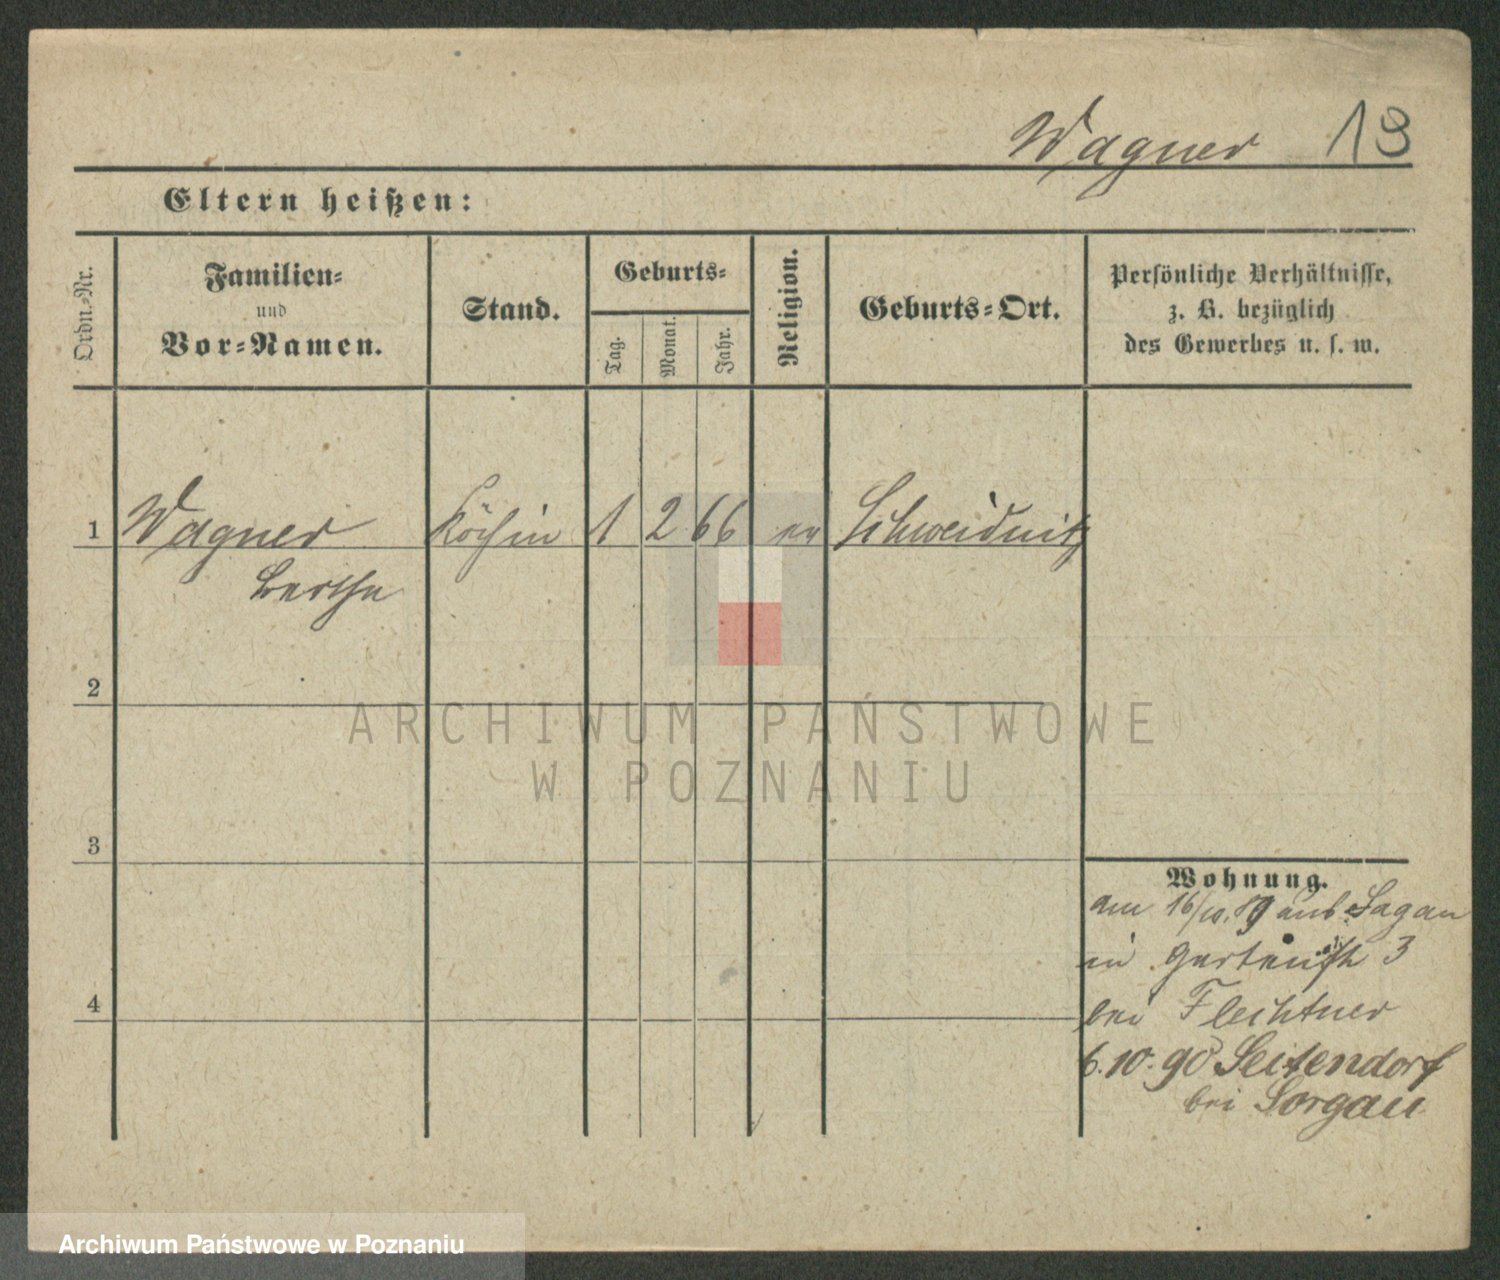 Wagner 13
Eltern heißen:
Ordn.-Nr.
Familien-
und
Vor-Namen.
Stand.
Geburts-
Tag.
Monat.
Jahr.
Religion.
Geburts-Ort.
Persönliche Verhältnisse,
z. B. bezüglich
des Gewerbes u. s. w.
1 Wagner Köchin 1 2 66 ev Schweidnitz
Berthe
2
3
4
Wohnung.
am 16/10.89 aus Sagan
in Gartenstr 3
bei Flechtner
6.10.90 Seitendorf
bei Sorgau
ARCHIWUM PAŃSTWOWE
W POZNANIU
Archiwum Państwowe w Poznaniu